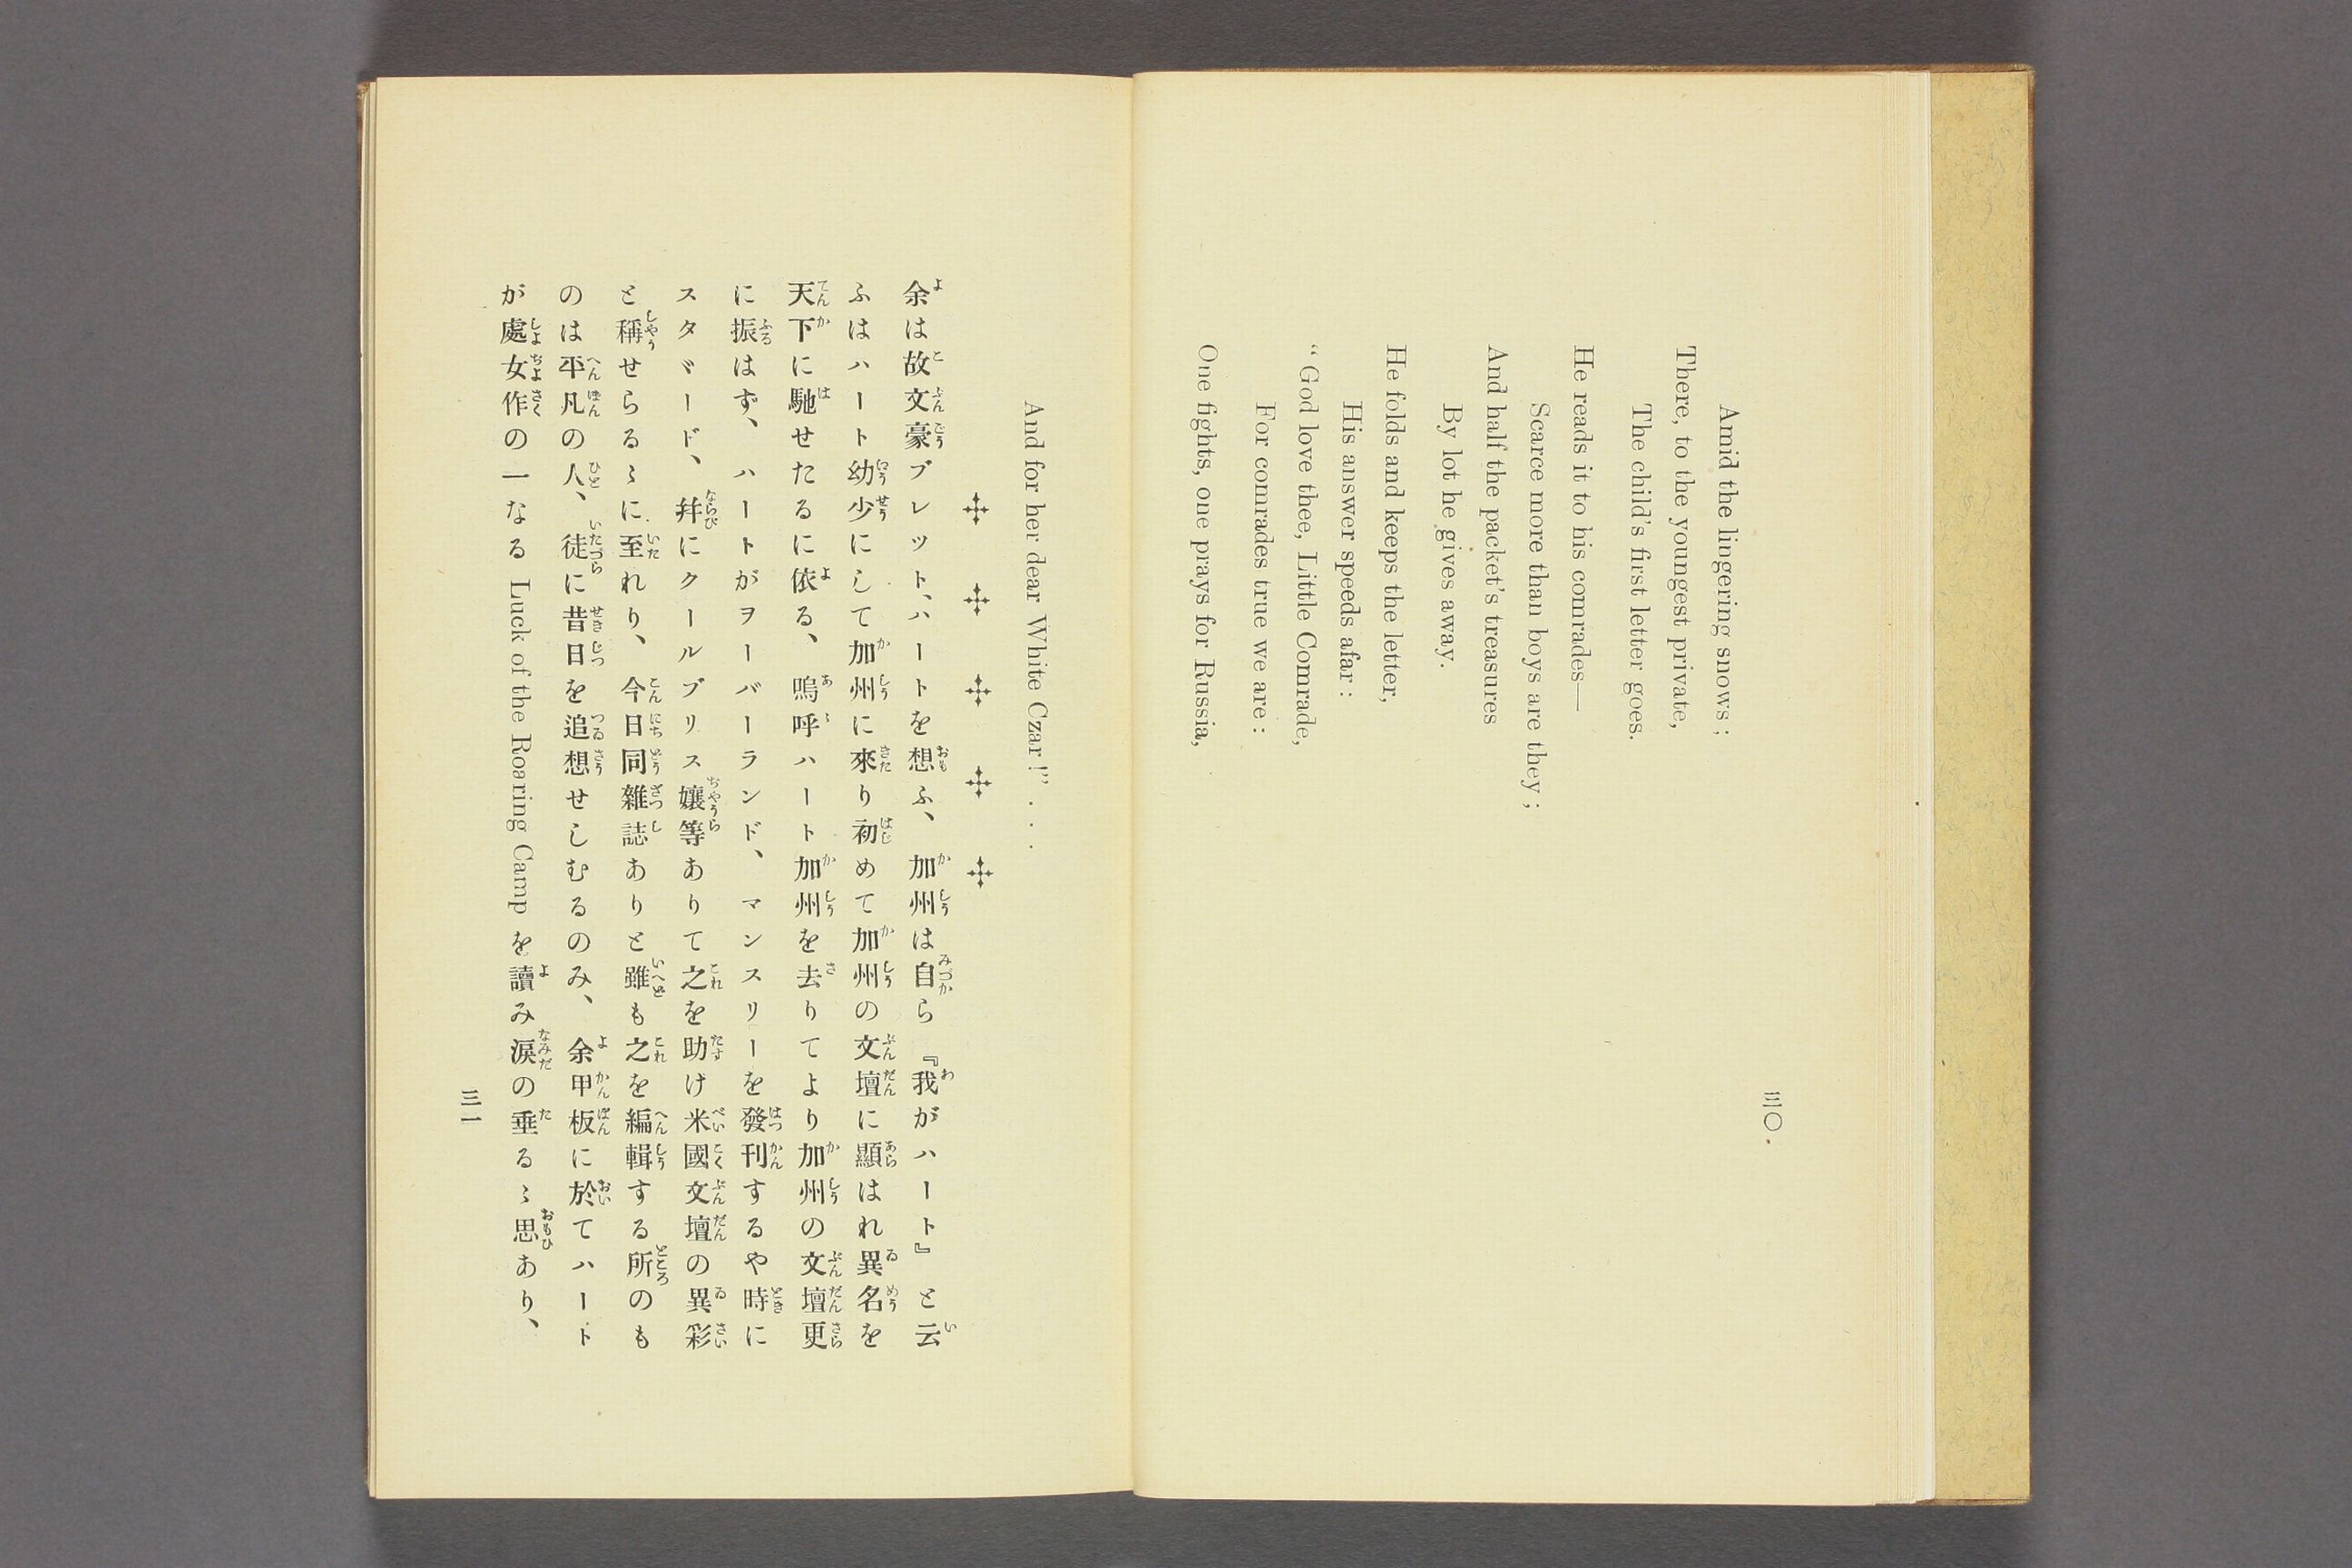 Amid the lingering snows ;
There, to the youngest private,
The child's first letter goes.
He reads it to his comrades—
Scarce more than boys are they ;
And half the packet's treasures
By lot he gives away.
He folds and keeps the letter,
His answer speeds afar :
“God love thee, Little Comrade,
For comrades true we are :
One fights, one prays for Russia,
三〇
And for her dear White Czar !” . . .
余は故文豪ブレット、ハートを想ふ、加州は自ら『我がハート』と云
ふはハート幼少にして加州に來り初めて加州の文壇に顯はれ異名を
天下に馳せたるに依る、嗚呼ハート加州を去りてより加州の文壇更
に振はず、ハートがヲーバーランド、マンスリーを發刊するや時に
スタドード、幷にクールブリス孃等ありて之を助け米國文壇の異彩
と稱せらるゝに至れり、今日同雜誌ありと雖も之を編輯する所のも
のは平凡の人、徒に昔日を追想せしむるのみ、余甲板に於てハート
が處女作の一なる Luck of the Roaring Camp を讀み淚の垂るゝ思あり、
三一